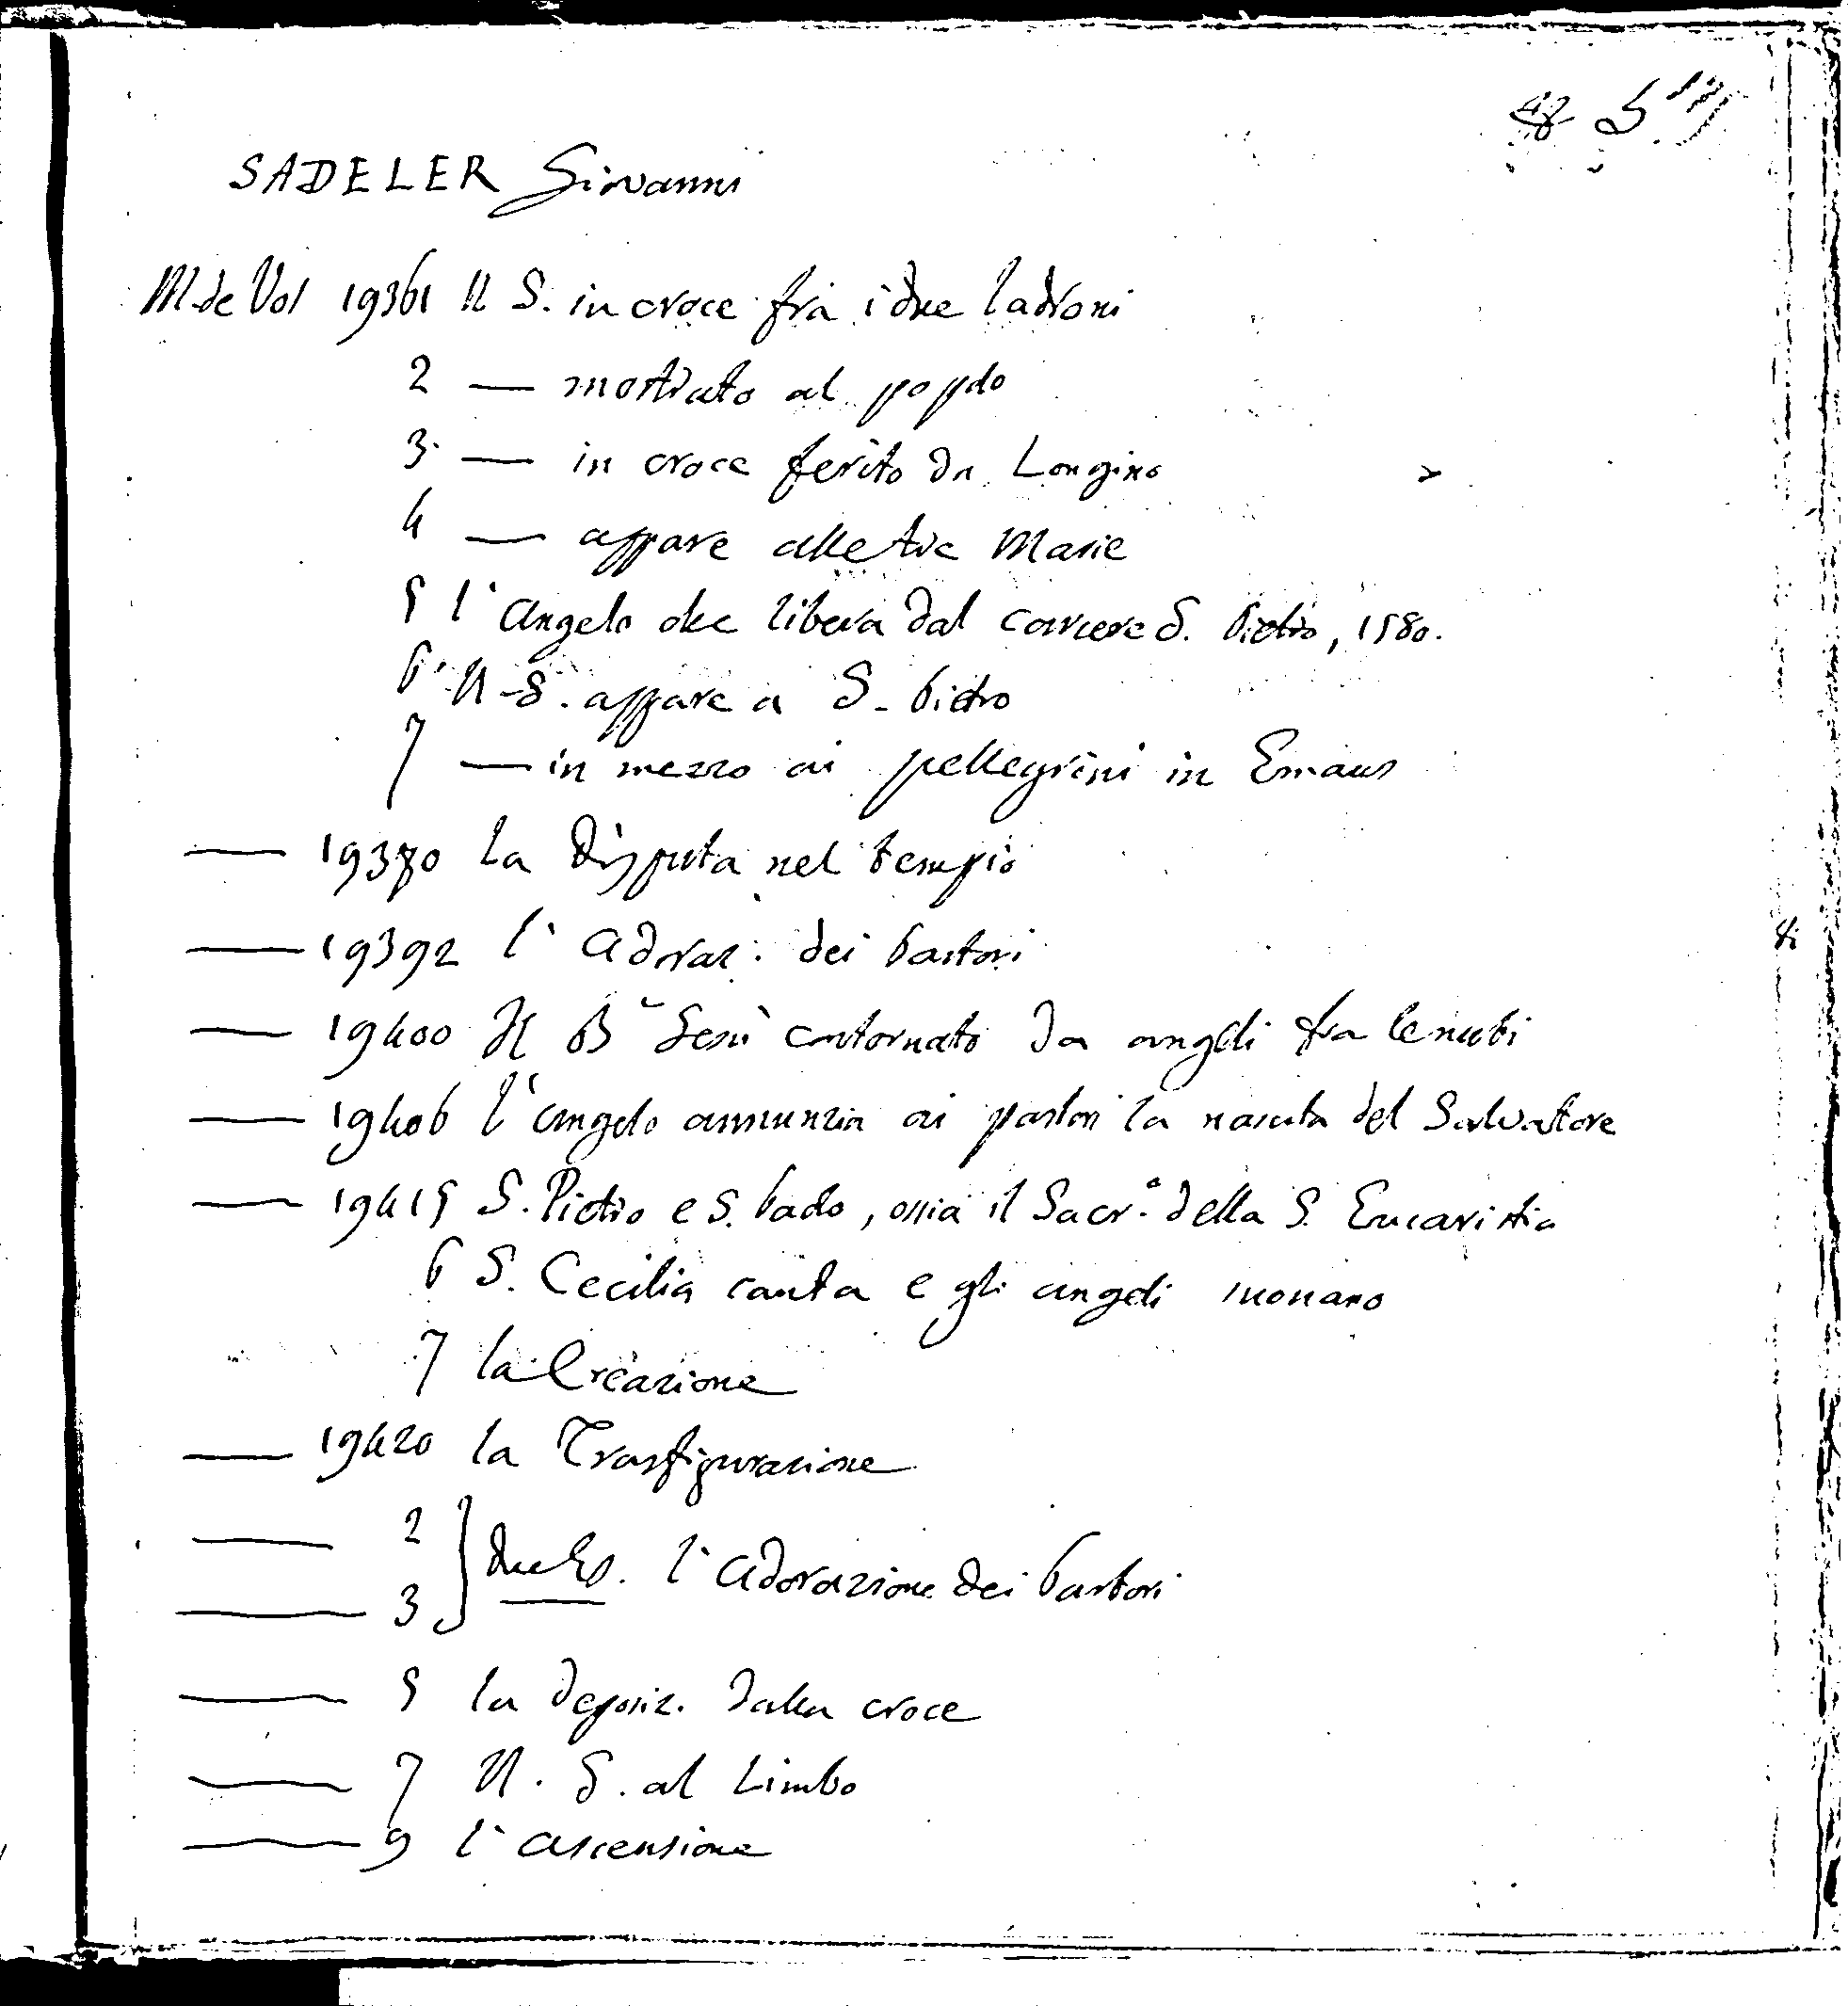 517
SADELER Giovanni
M de Vos 19361 N S. in croce fra i due ladroni
2 — mostrato al popolo
3 — in croce ferito da Longino
4 — appare alle tre Marie
5 l'Angelo che libera dal carcere S. Pietro, 1580.
6 N-S. appare a S. Pietro
7 — in mezzo ai pellegrini in Emaus
— 19370 la Disputa nel tempio
— 19392 l'Adoraz. dei Pastori
— 19400 Il Bº Gesù contornato da angeli fra le nubi
— 19406 l'angelo annunzia ai pastori la nascita del Salvatore
— 19415 S. Pietro e S. Paolo, ossia il Sacr.º della S. Eucaristia
6 S. Cecilia canta e gli angeli suonano
7 la Creazione
— 19420 la Trasfigurazione
— 2
due Es. l'adorazione dei Pastori
— 3
— 5 la deposiz. dalla croce
— 7 N. S. al Limbo
— 9 l'ascensione